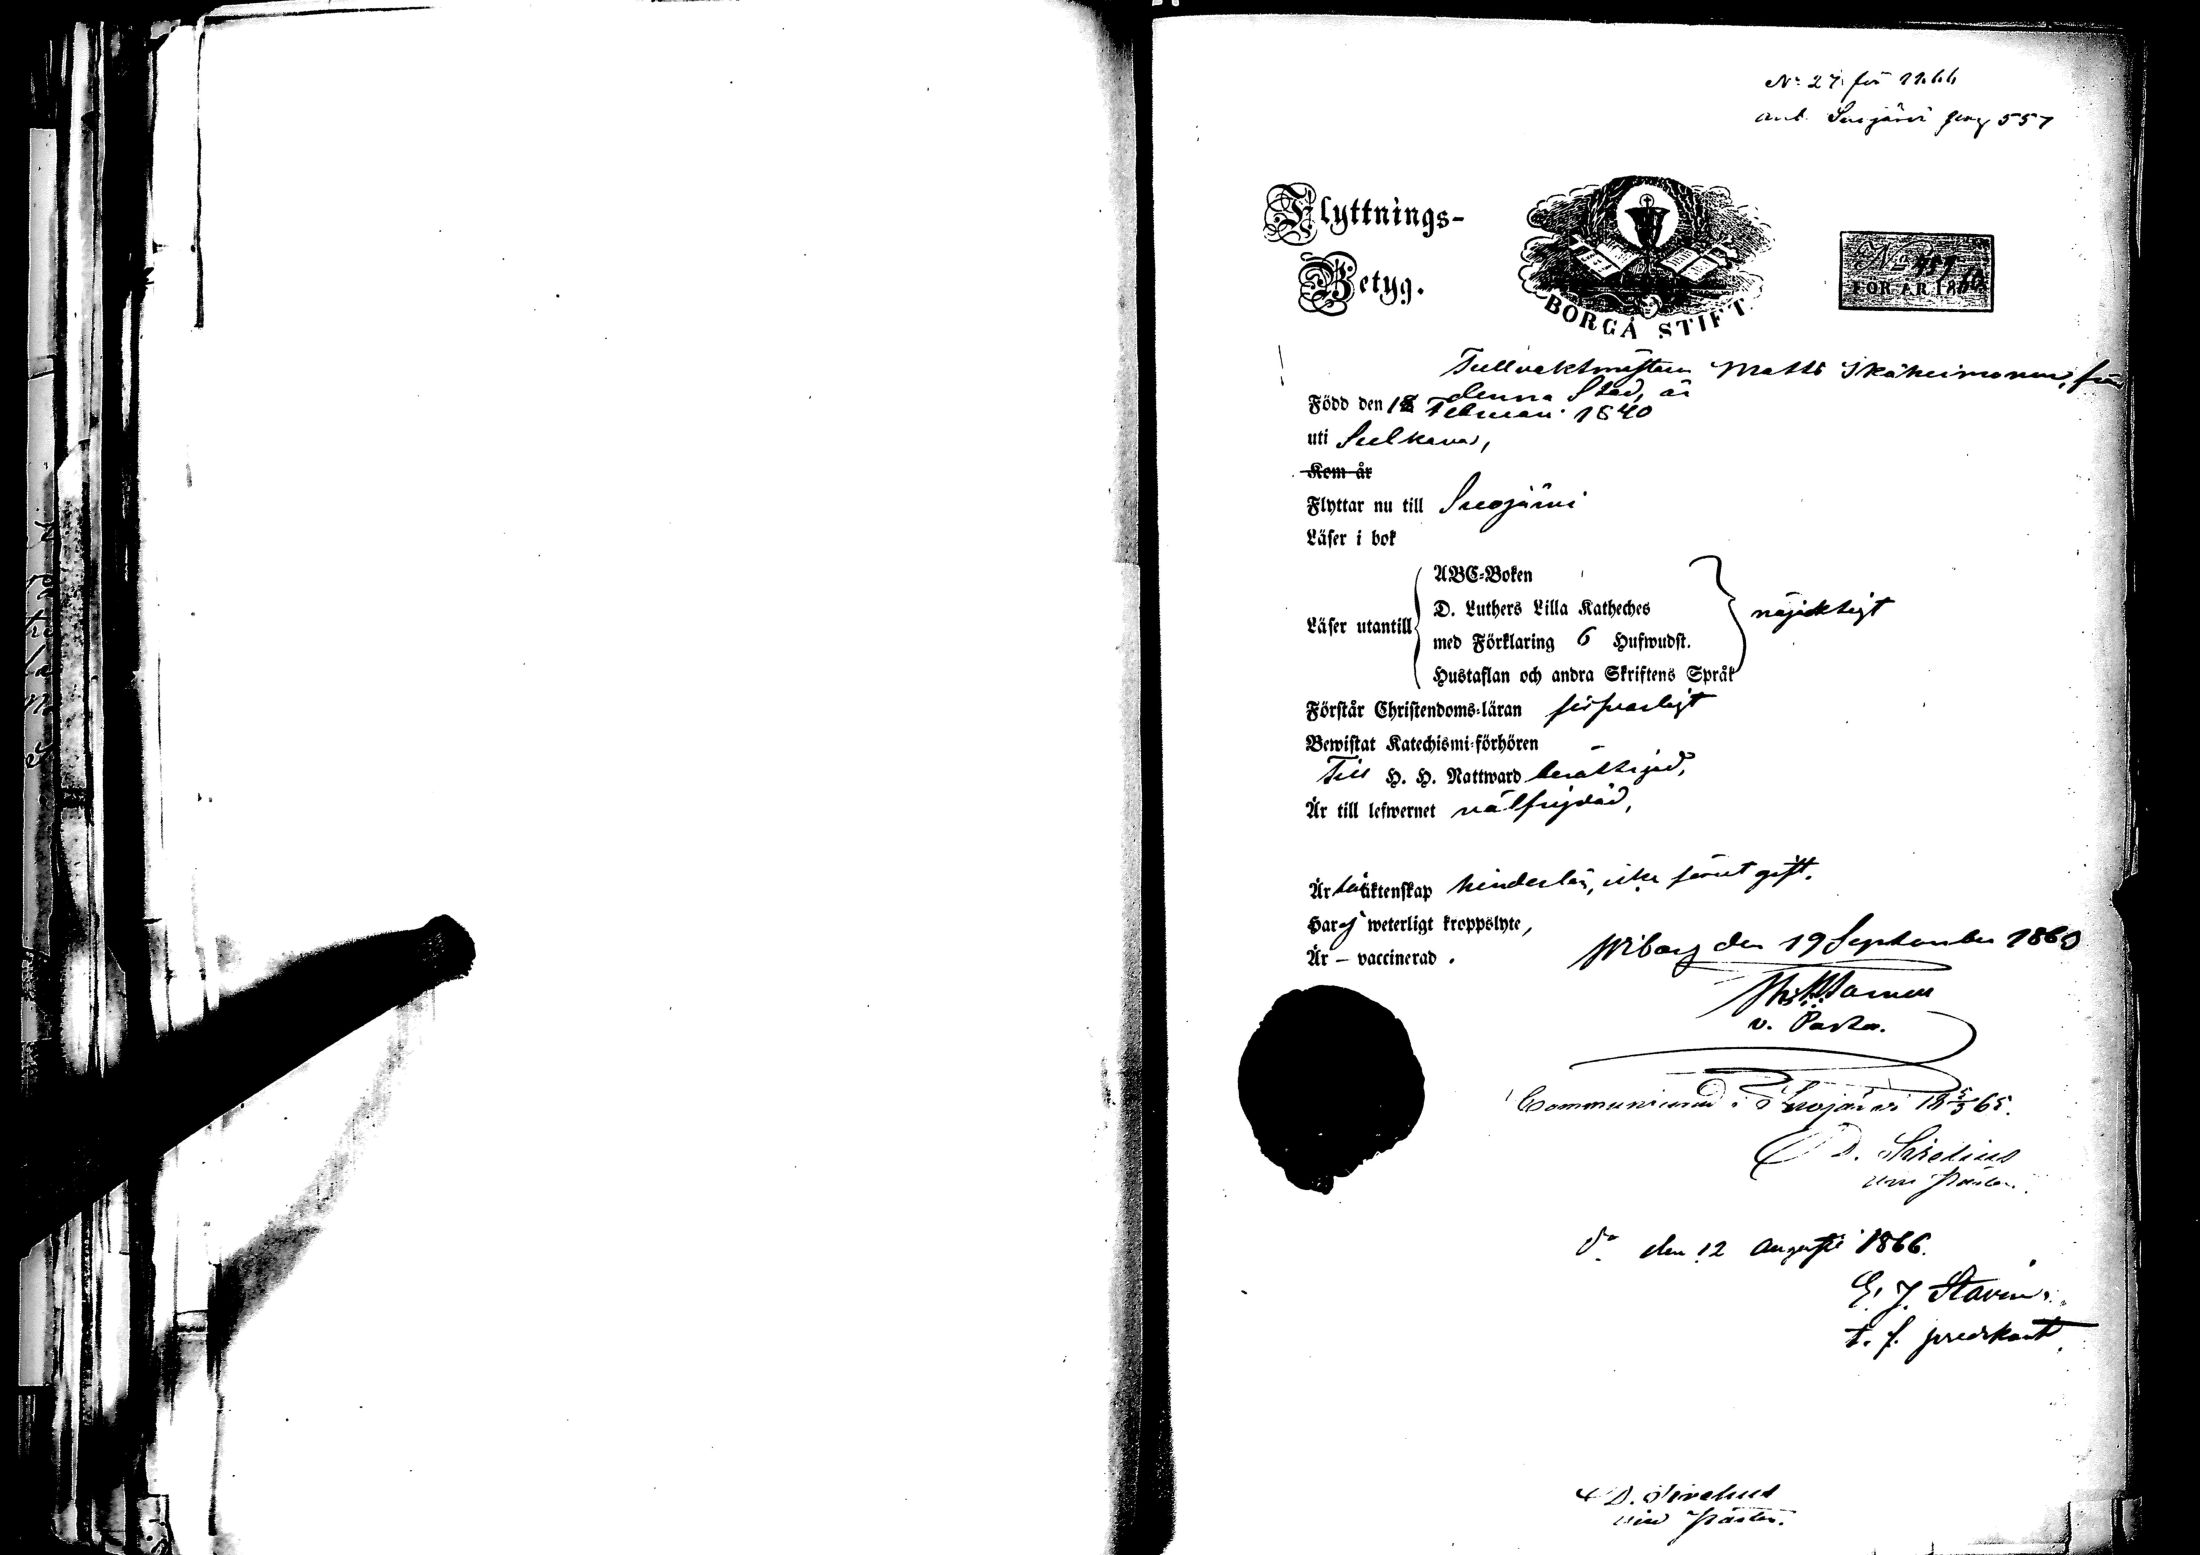 No 27 för 1866
ant. Suojärvi pag 557
Flyttnings-
Betyg.
BORGÅ STIFT.
No 459
FÖR ÅR 1860
Tullvaktmästaren Matts Ikäheimonen, från
denna Stad, är
Född den 18 Februari 1840
uti Sulkava,
Kom år
Flyttar nu till Suojärvi
Läser i bok
ABC-Boken
D. Luthers Lilla Katheches
Läser utantill
med Förklaring 6 Hufwudst.
Hustaflan och andra Skriftens Språk
nöjaktigt
Förstår Christendoms-läran försvarligt
Bewistat Katechismi-förhören
Till H. H. Nattward berättigad,
Är till lefwernet välfrejdad,
Är till äktenskap hinderlös, icke förut gift.
Har ej weterligt kroppslyte,
Är – vaccinerad.
Wiborg den 19 September 1860
v. Pastor.
Communicerad i Suojärvi 18 5/3 65.
D. Sirelius
vice Pastor.
do den 12 Augusti 1866.
E. J.
t. f. predikant
D. Sirelius
vice Pastor.